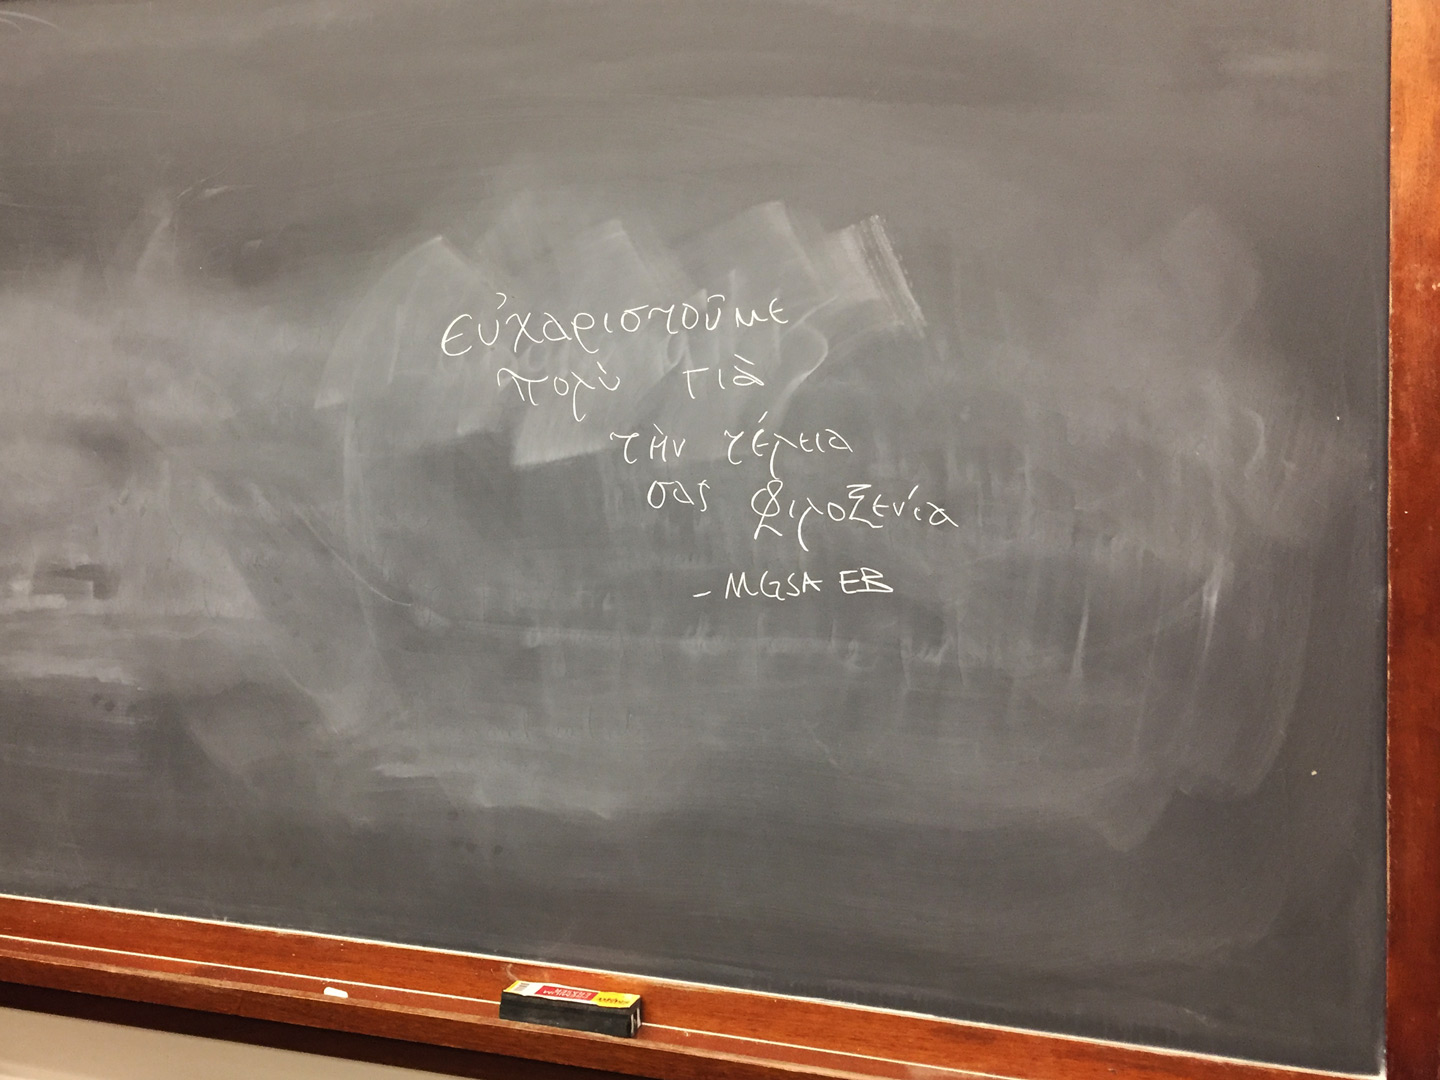 εὐχαριστοῦμε
πολὺ γιὰ
τὴν τέλεια
σας φιλοξενία
- MGSA EB